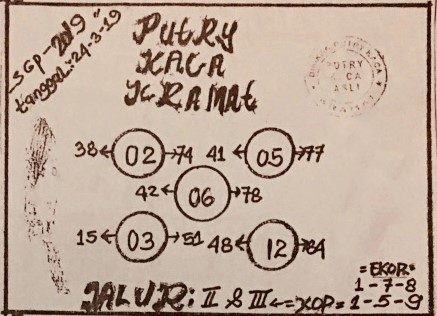 SGP-2019"
tanggal:24-3-19
PUTRY
KACA
KRAMAT
PUTRY
CA
ASLI
38←02→74 41←05→77
42←06→78
15←03→51 48←12→84
=EKOR=
1-7-8
JALUR: II & III ←=KOP= 1-5-9